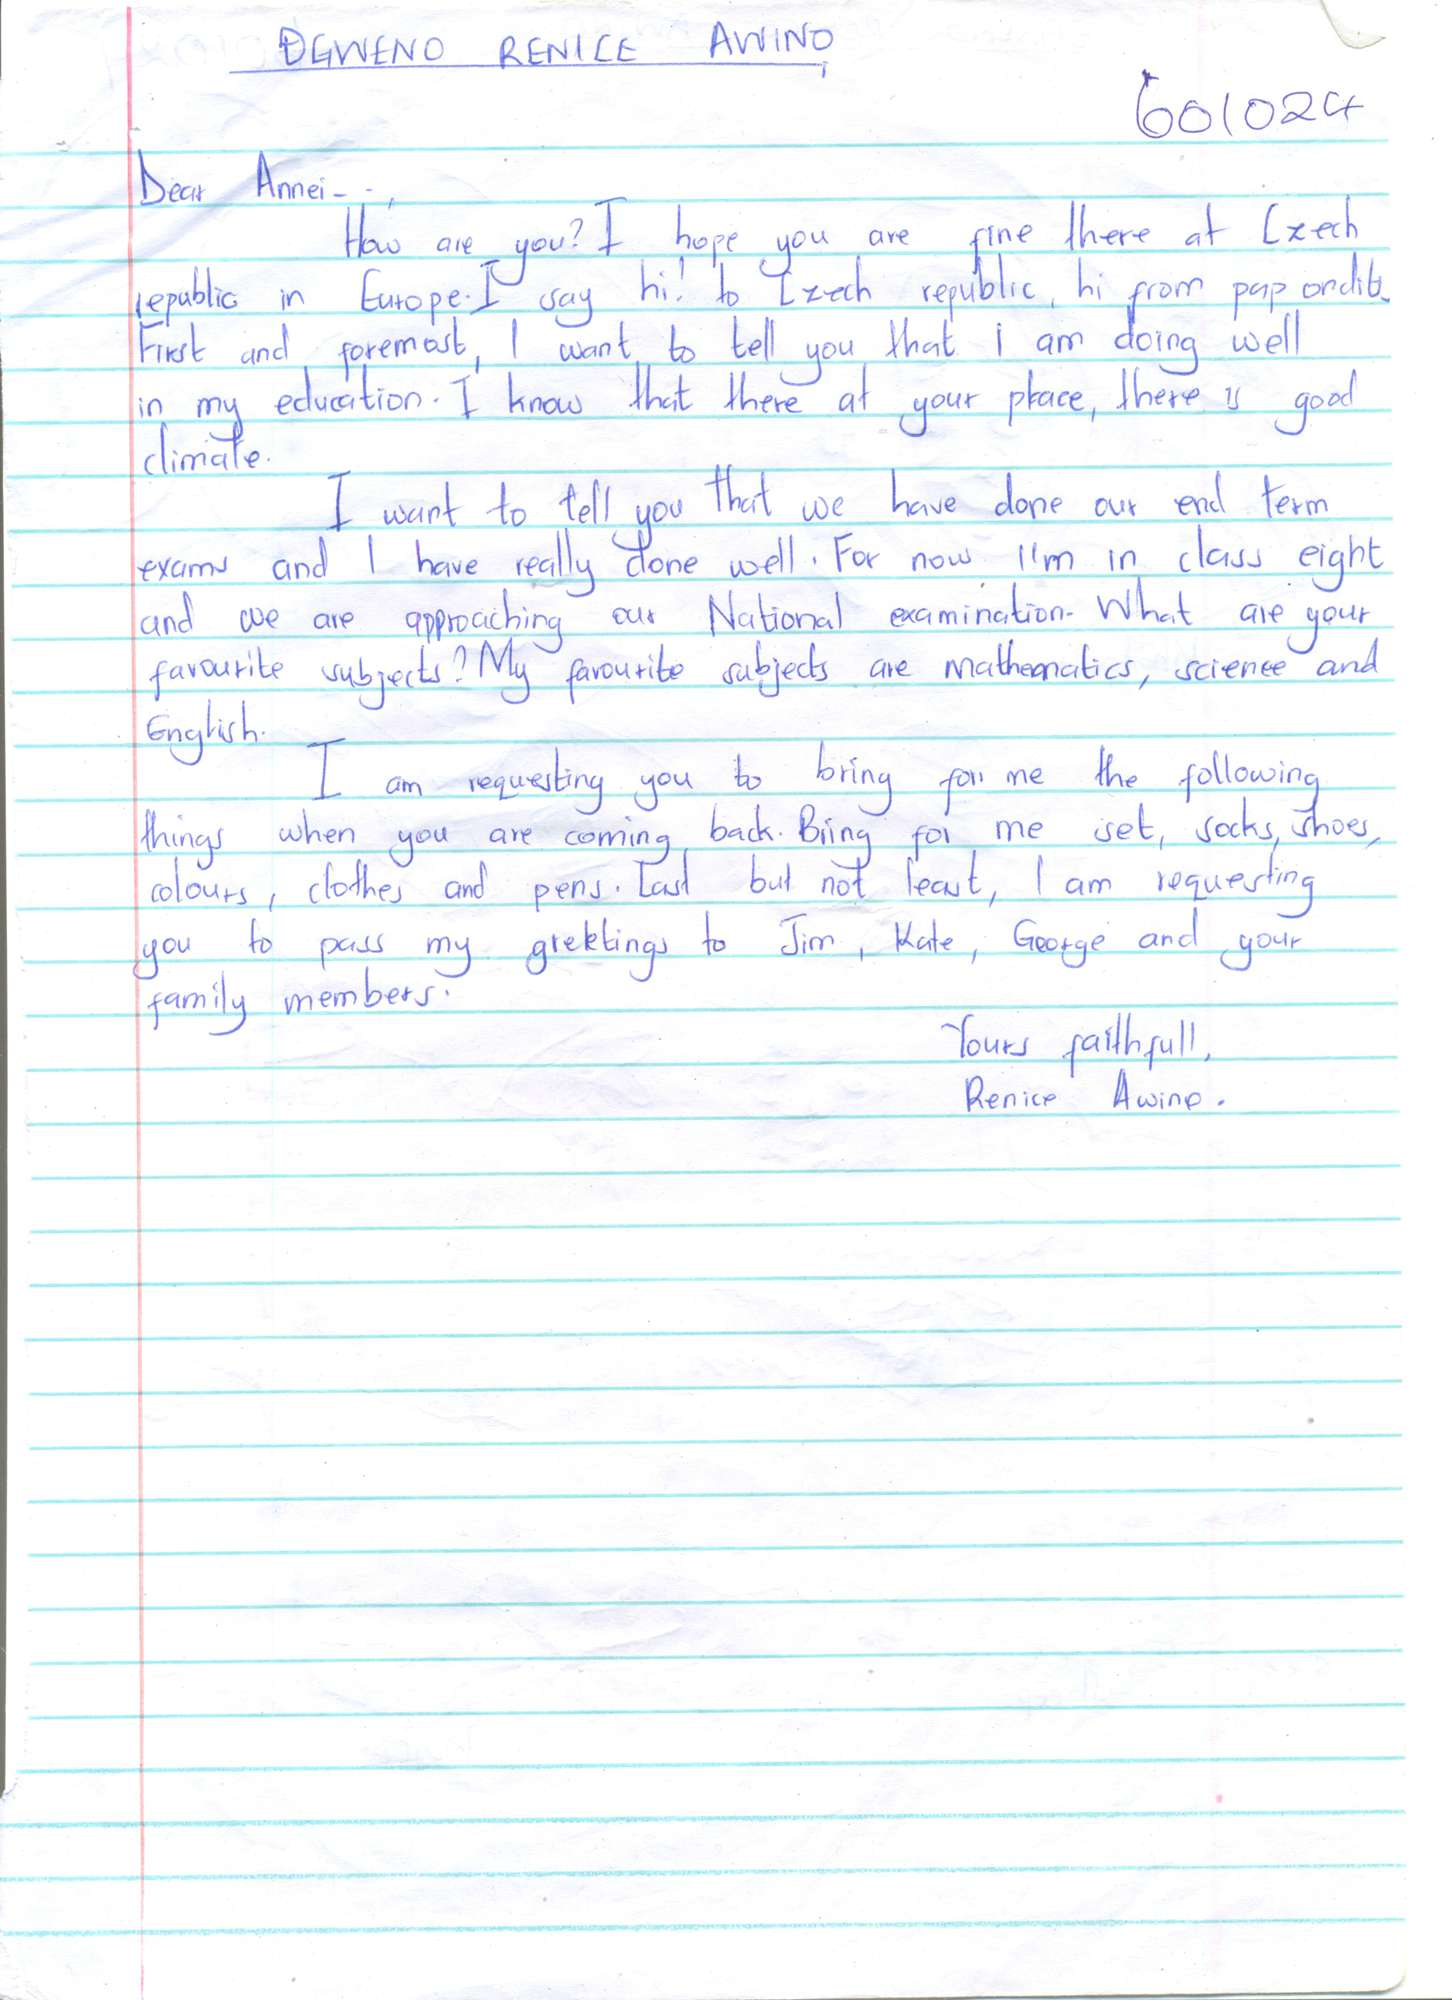 OGWENO RENICE AWINO
601024
Dear Annei - -,
How are you? I hope you are fine there at Czech
republic in Europe. I say hi! to Czech republic, hi from pap ondit.
First and foremost, I want to tell you that i am doing well
in my education. I know that there at your place, there is good
climate.
I want to tell you that we have done our end term
exams and I have really done well. For now I'm in class eight
and we are approaching our National examination. What are your
favourite subjects? My favourite subjects are mathematics, science and
English.
I am requesting you to bring for me the following
things when you are coming back. Bring for me set, socks, shoes,
colours, clothes and pens. Last but not least, I am requesting
you to pass my greektings to Jim, Kate, George and your
family members.
Yours faithfull,
Renice Awino.